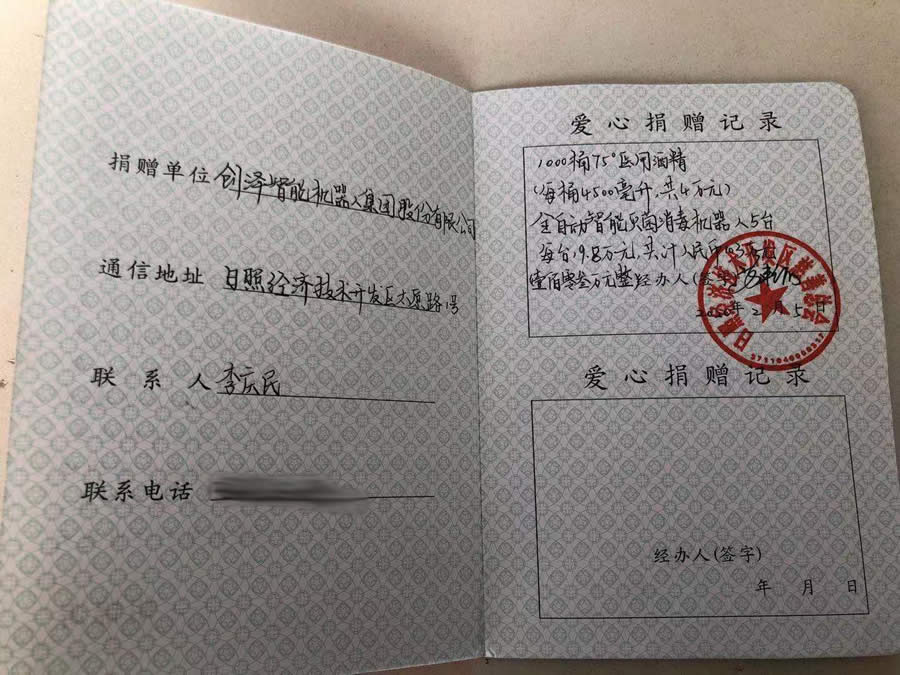 捐赠单位 创泽智能机器人集团股份有限公司
通信地址 日照经济技术开发区太原路号
联系人 李庆民
联系电话
爱心捐赠记录
1000桶75°医用酒精
(每桶4500毫升,共4万元)
全自动智能灭菌消毒机器人5台
每台19.8万元,共计人民币
壹佰零叁万元整 经办人(签字)
2020年2月5日
爱心捐赠记录
经办人(签字)
年 月 日